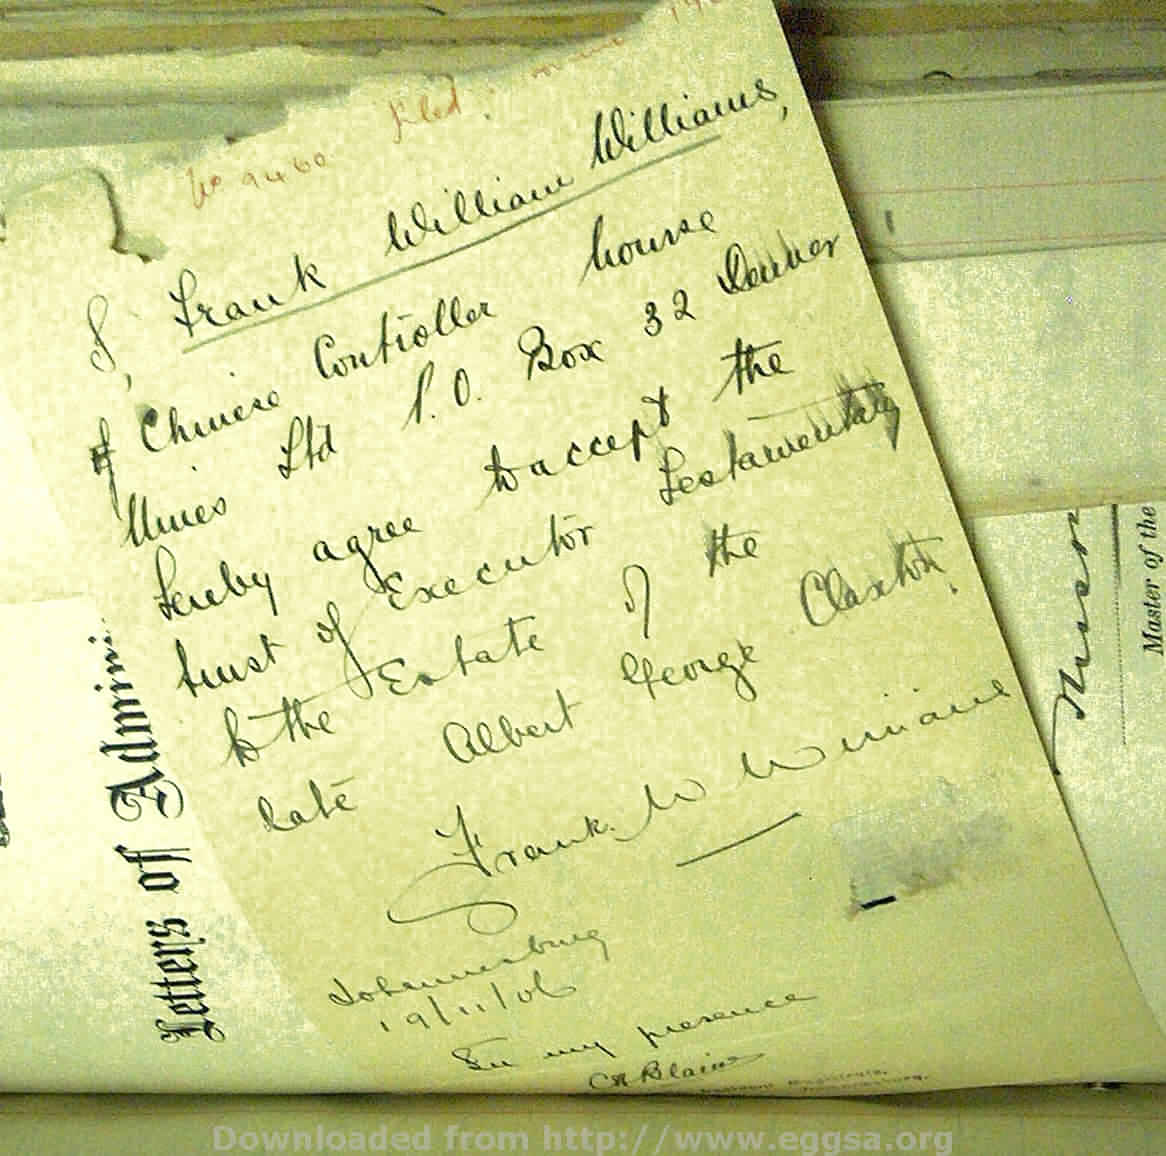 No 9460 Filed.
I, Frank William Williams,
of Chinese Controller
Mines Ltd P.O. Box 32 Denver
hereby agree to accept the
trust of Executor Testamentary
to the Estate of the
late Albert George Claxton.
Frank W Williams
Johannesburg
19/11/06
In my presence
Blaine
Letters of
Master of the
Downloaded from http://www.eggsa.org